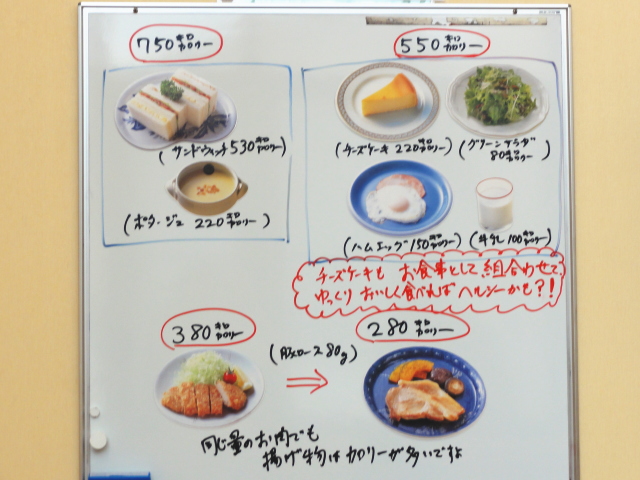 750キロカロリー
550キロカロリー
(サンドウィッチ530キロカロリー)
(チーズケーキ 220キロカロリー)
(グリーンサラダ
80キロカロリー)
(ポタージュ 220キロカロリー)
(ハムエッグ150キロカロリー)
(牛乳100キロカロリー)
チーズケーキも お食事として組合わせて、
ゆっくりおいしく食べればヘルシーかも?!
380キロカロリー
280キロカロリー
(豚ロース80g)
同じ量のお肉でも
揚げ物はカロリーが多いですよ